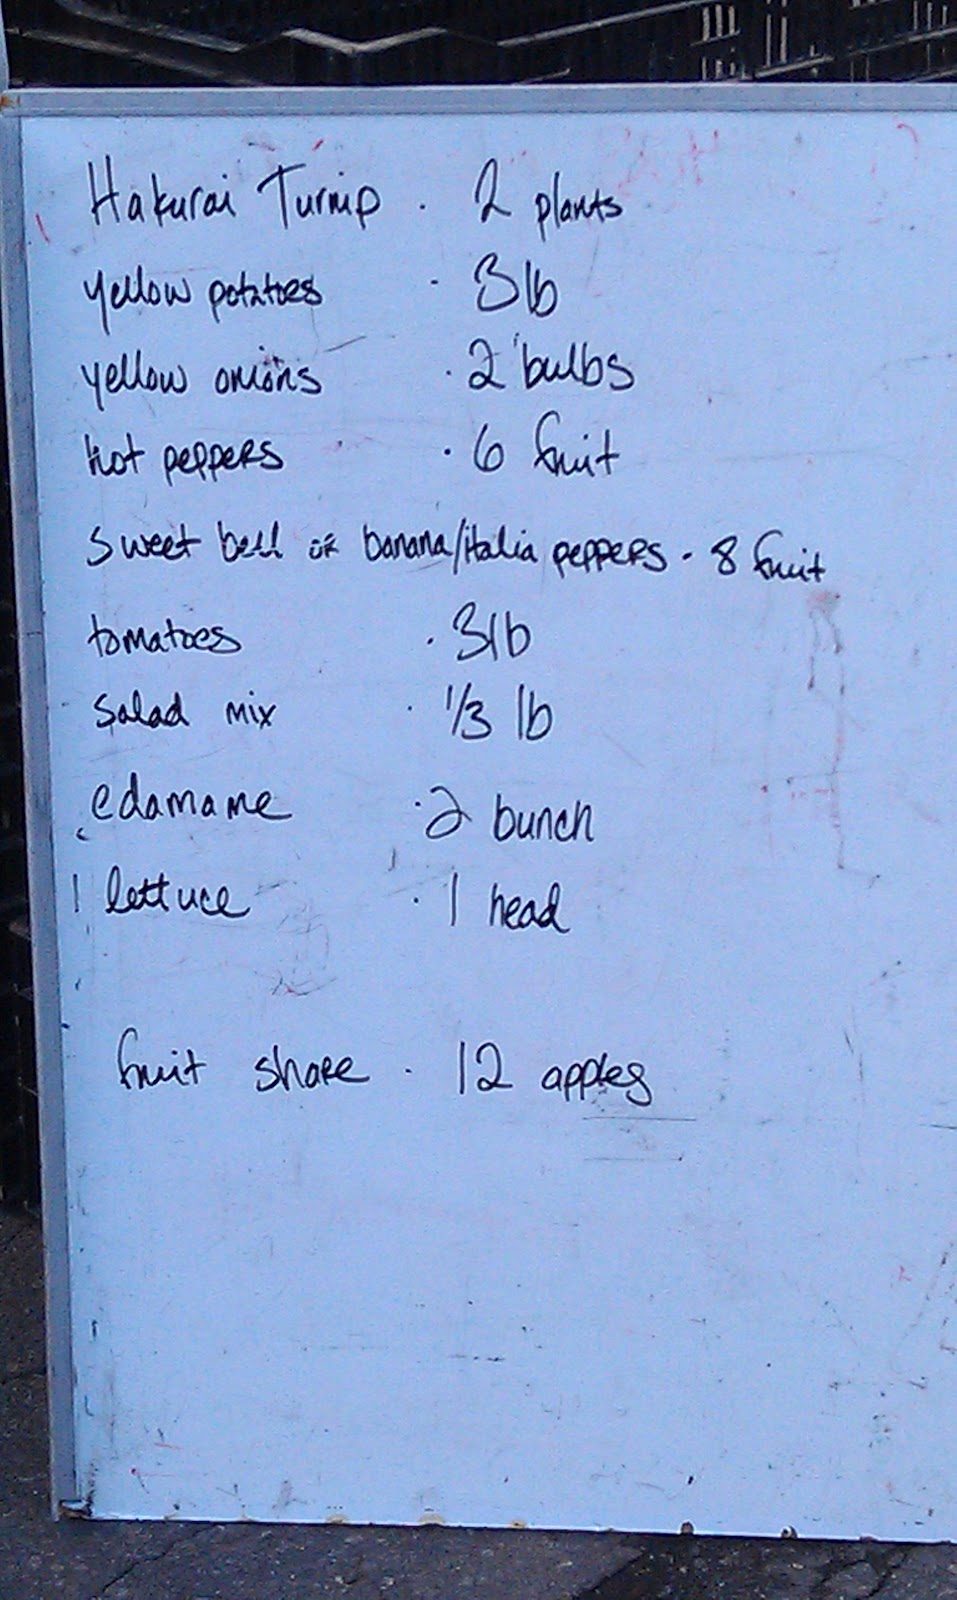 Hakurai Turnip . 2 plants
yellow potatoes . 3 lb
yellow onions . 2 bulbs
hot peppers . 6 fruit
sweet bell or banana/italia peppers . 8 fruit
tomatoes . 3 lb
salad mix . 1/3 lb
edamame . 2 bunch
lettuce . 1 head
fruit share . 12 apples